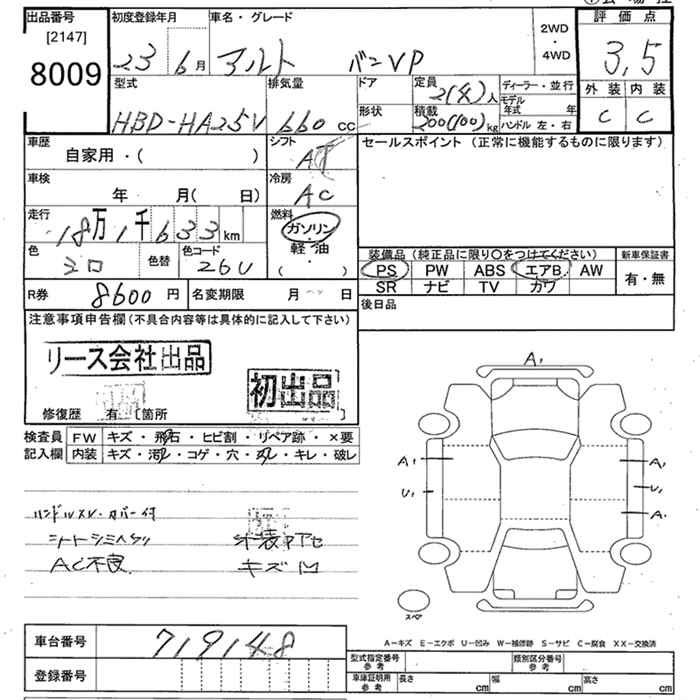 出品番号 初度登録年月 車名・グレード 2WD・4WD 評価点
[2147]
8009
23 6月 アルト バンVP 3,5
型式 排気量 ドア 定員 2(4)人 ディーラー・並行 外装 内装
HBD-HA25V 660 CC 形状 積載 200(100)kg モデル年式 年 C C
ハンドル 左・右
車歴 シフト セールスポイント (正常に機能するものに限ります)
自家用・( ) AT
車検 冷房
年 月( 日) AC
走行 燃料
18万1千633km ガソリン・軽油・( )
色 色替 色コード 装備品 (純正品に限り○をつけてください) 新車保証書
シロ 26U PS PW ABS エアB AW 有・無
R券 8600円 名変期限 月 日 SR ナビ TV カワ
注意事項申告欄(不具合内容等は具体的に記入して下さい) 後日品
リース会社出品
初出品
修復歴 有 [箇所
検査員 FW キズ・飛石・ヒビ割・リペア跡・×要
記入欄 内装 キズ・汚レ・コゲ・穴・スレ・キレ・破レ
A1
A1 A1
U1 U1
A1
ハンドルスレ・カバー付
シートシミヘタリ
AC不良 キズ凹
スペア
A−キズ E−エクボ U−凹み W−補修跡 S−サビ C−腐食 XX−交換済
車台番号 719148
登録番号
型式指定番号 参考 類別区分番号 参考
車庫証明用 参考 長さ cm 幅 cm 高さ cm